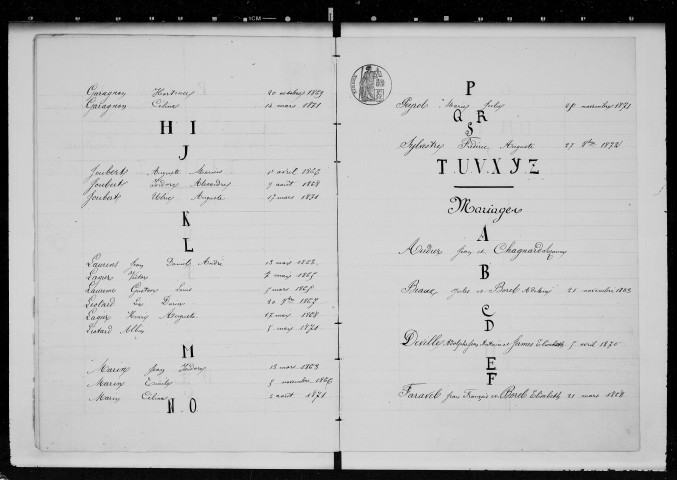 Garagnon Hortense 20 octobre 1869
Garagnon Célina 14 mars 1871
H I
J
Joubert Auguste avril
Joubert Isidore Alexandre 9 août 1868
Joubert Auguste 17 mars 1871
K
L
Laurens Jean Daniel André 13 mars 1863
Lager Victor 2 mars 1865
Laurens Gustave Louis mars 1865
Liotard 20 9bre 1867
Lager Henri Auguste 17 mars 1868
Liotard Albin 8 mars 1871
M
Marin Jean Isidore 13 mars 1863
Marin Emile novembre 1866
Marin Célina août 1871
N O
P
Peyrol Marie novembre 1871
Q R
S
Sylvestre Frédéric Auguste 27 9bre 1872
T.U.V.X.Y.Z
Mariages
A
Audier Jean et Chagnard
B
Beaux Jules et Borel 21 novembre 1863
C
D
Deville Adolphe Jean et James Elisabeth avril 1870
E
F
Faravel Jean François et Borel Elisabeth 21 mars 1868